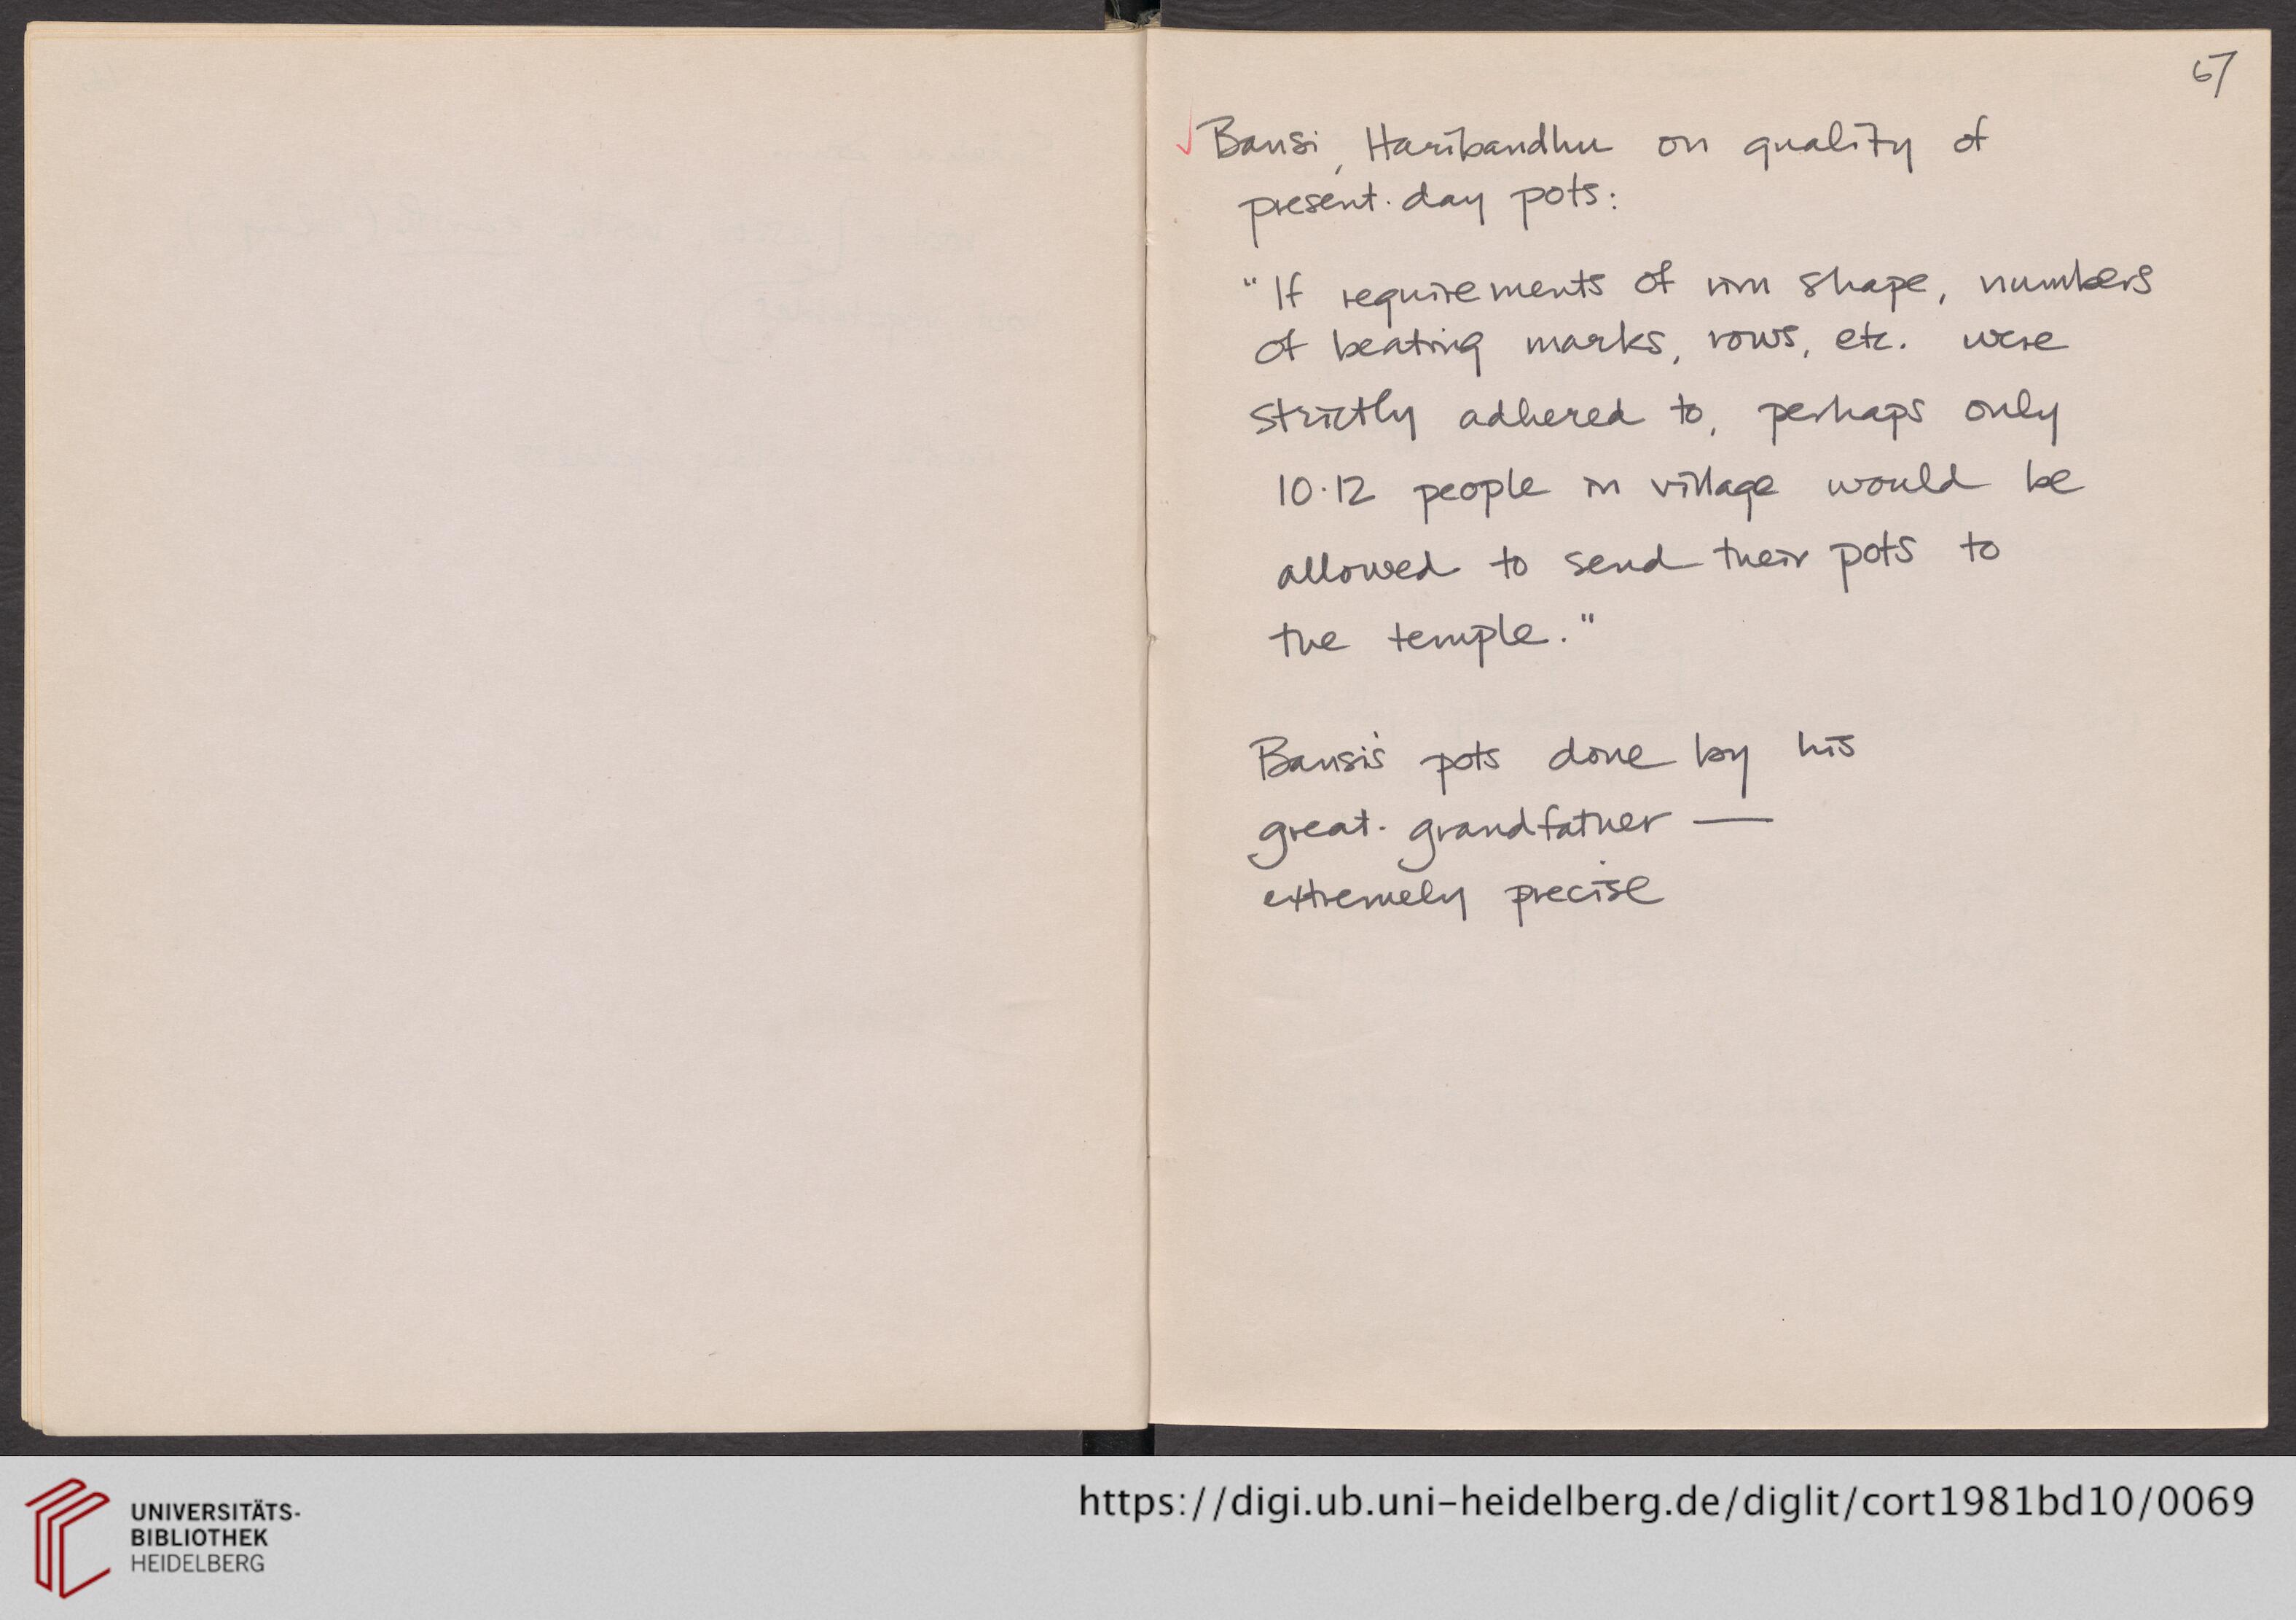 67
Bansi, Haribandhu on quality of
present-day pots:
"If requirements of rim shape, numbers
of beating marks, rows, etc. were
strictly adhered to, perhaps only
10-12 people in village would be
allowed to send their pots to
the temple."
Bansi's pots done by his
great-grandfather —
extremely precise
UNIVERSITÄTS-
BIBLIOTHEK
HEIDELBERG
https://digi.ub.uni-heidelberg.de/diglit/cort1981bd10/0069